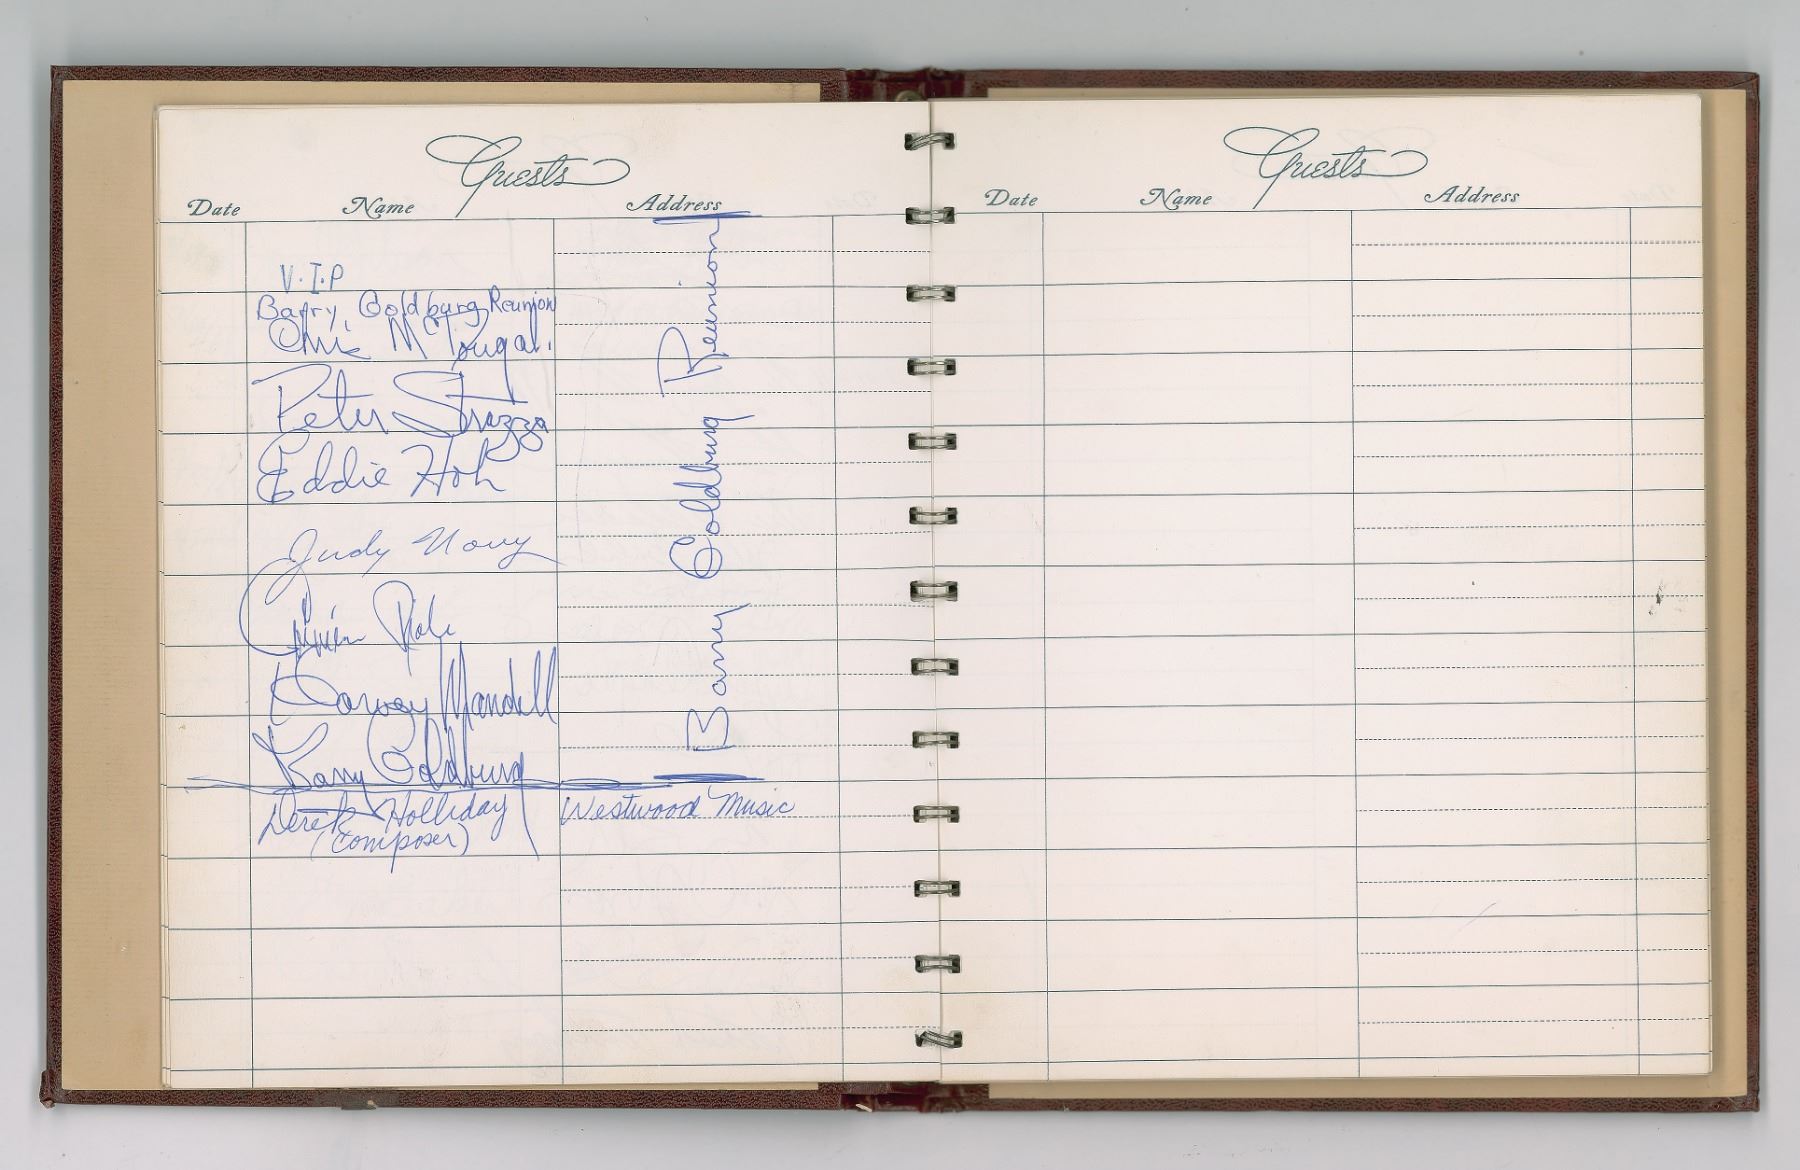 Guests
Date Name Address
V.I.P
Barry Goldburg Reunion
Chris McDougal.
Peter Strazza
Eddie Hoh
Judy Novy
Harvey Mandell
Barry Goldburg
Derek Holliday Westwood Music
(composer)
Barry Goldburg Reunion
Guests
Date Name Address